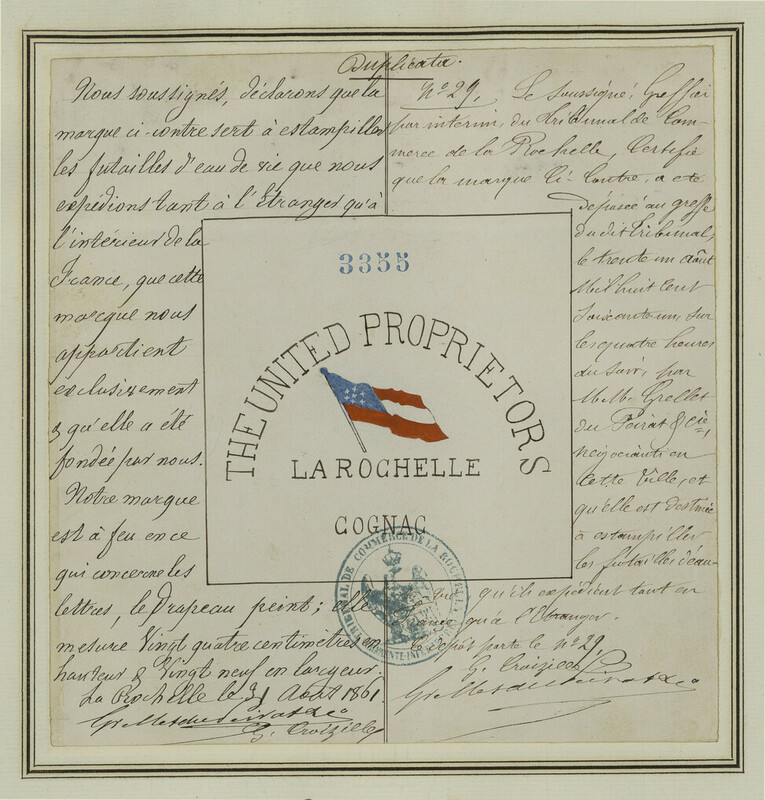 Duplicata.
Nous soussignés, déclarons que la
marque ci-contre sert à estampiller
les futailles d'eau de vie que nous
expédions tant à l'Etranger qu'à
l'intérieur de la
France, que cette
marque nous
appartient
exclusivement
& qu'elle a été
fondée par nous.
Notre marque
est à feu en ce
qui concerne les
lettres, le Drapeau peint; elle
mesure Vingt quatre centimètres en
hauteur & Vingt neuf en largeur.
La Rochelle le 31 Août 1861
G. Croizille
3355
THE UNITED PROPRIETORS
LA ROCHELLE
COGNAC
TRIBUNAL DE COMMERCE DE LA ROCHELLE
CHARENTE-INFRE
No 29. Le soussigné, Greffier
par interim, du Tribunal de Com-
merce de la Rochelle, Certifie
que la marque Ci-Contre, a été
déposée au greffe
du dit Tribunal,
le trente un août
Mil huit cent
Soixante un, sur
les quatre heures
du Soir, par
M.M. Grellet
du Peirat & Cie,
négociants en
cette Ville, et
qu'elle est destinée
à estampiller
les futailles d'eau-
qu'ils expédient tant en
France qu'à l'Etranger.
Le dépôt porte le No 29.
G. Croizille